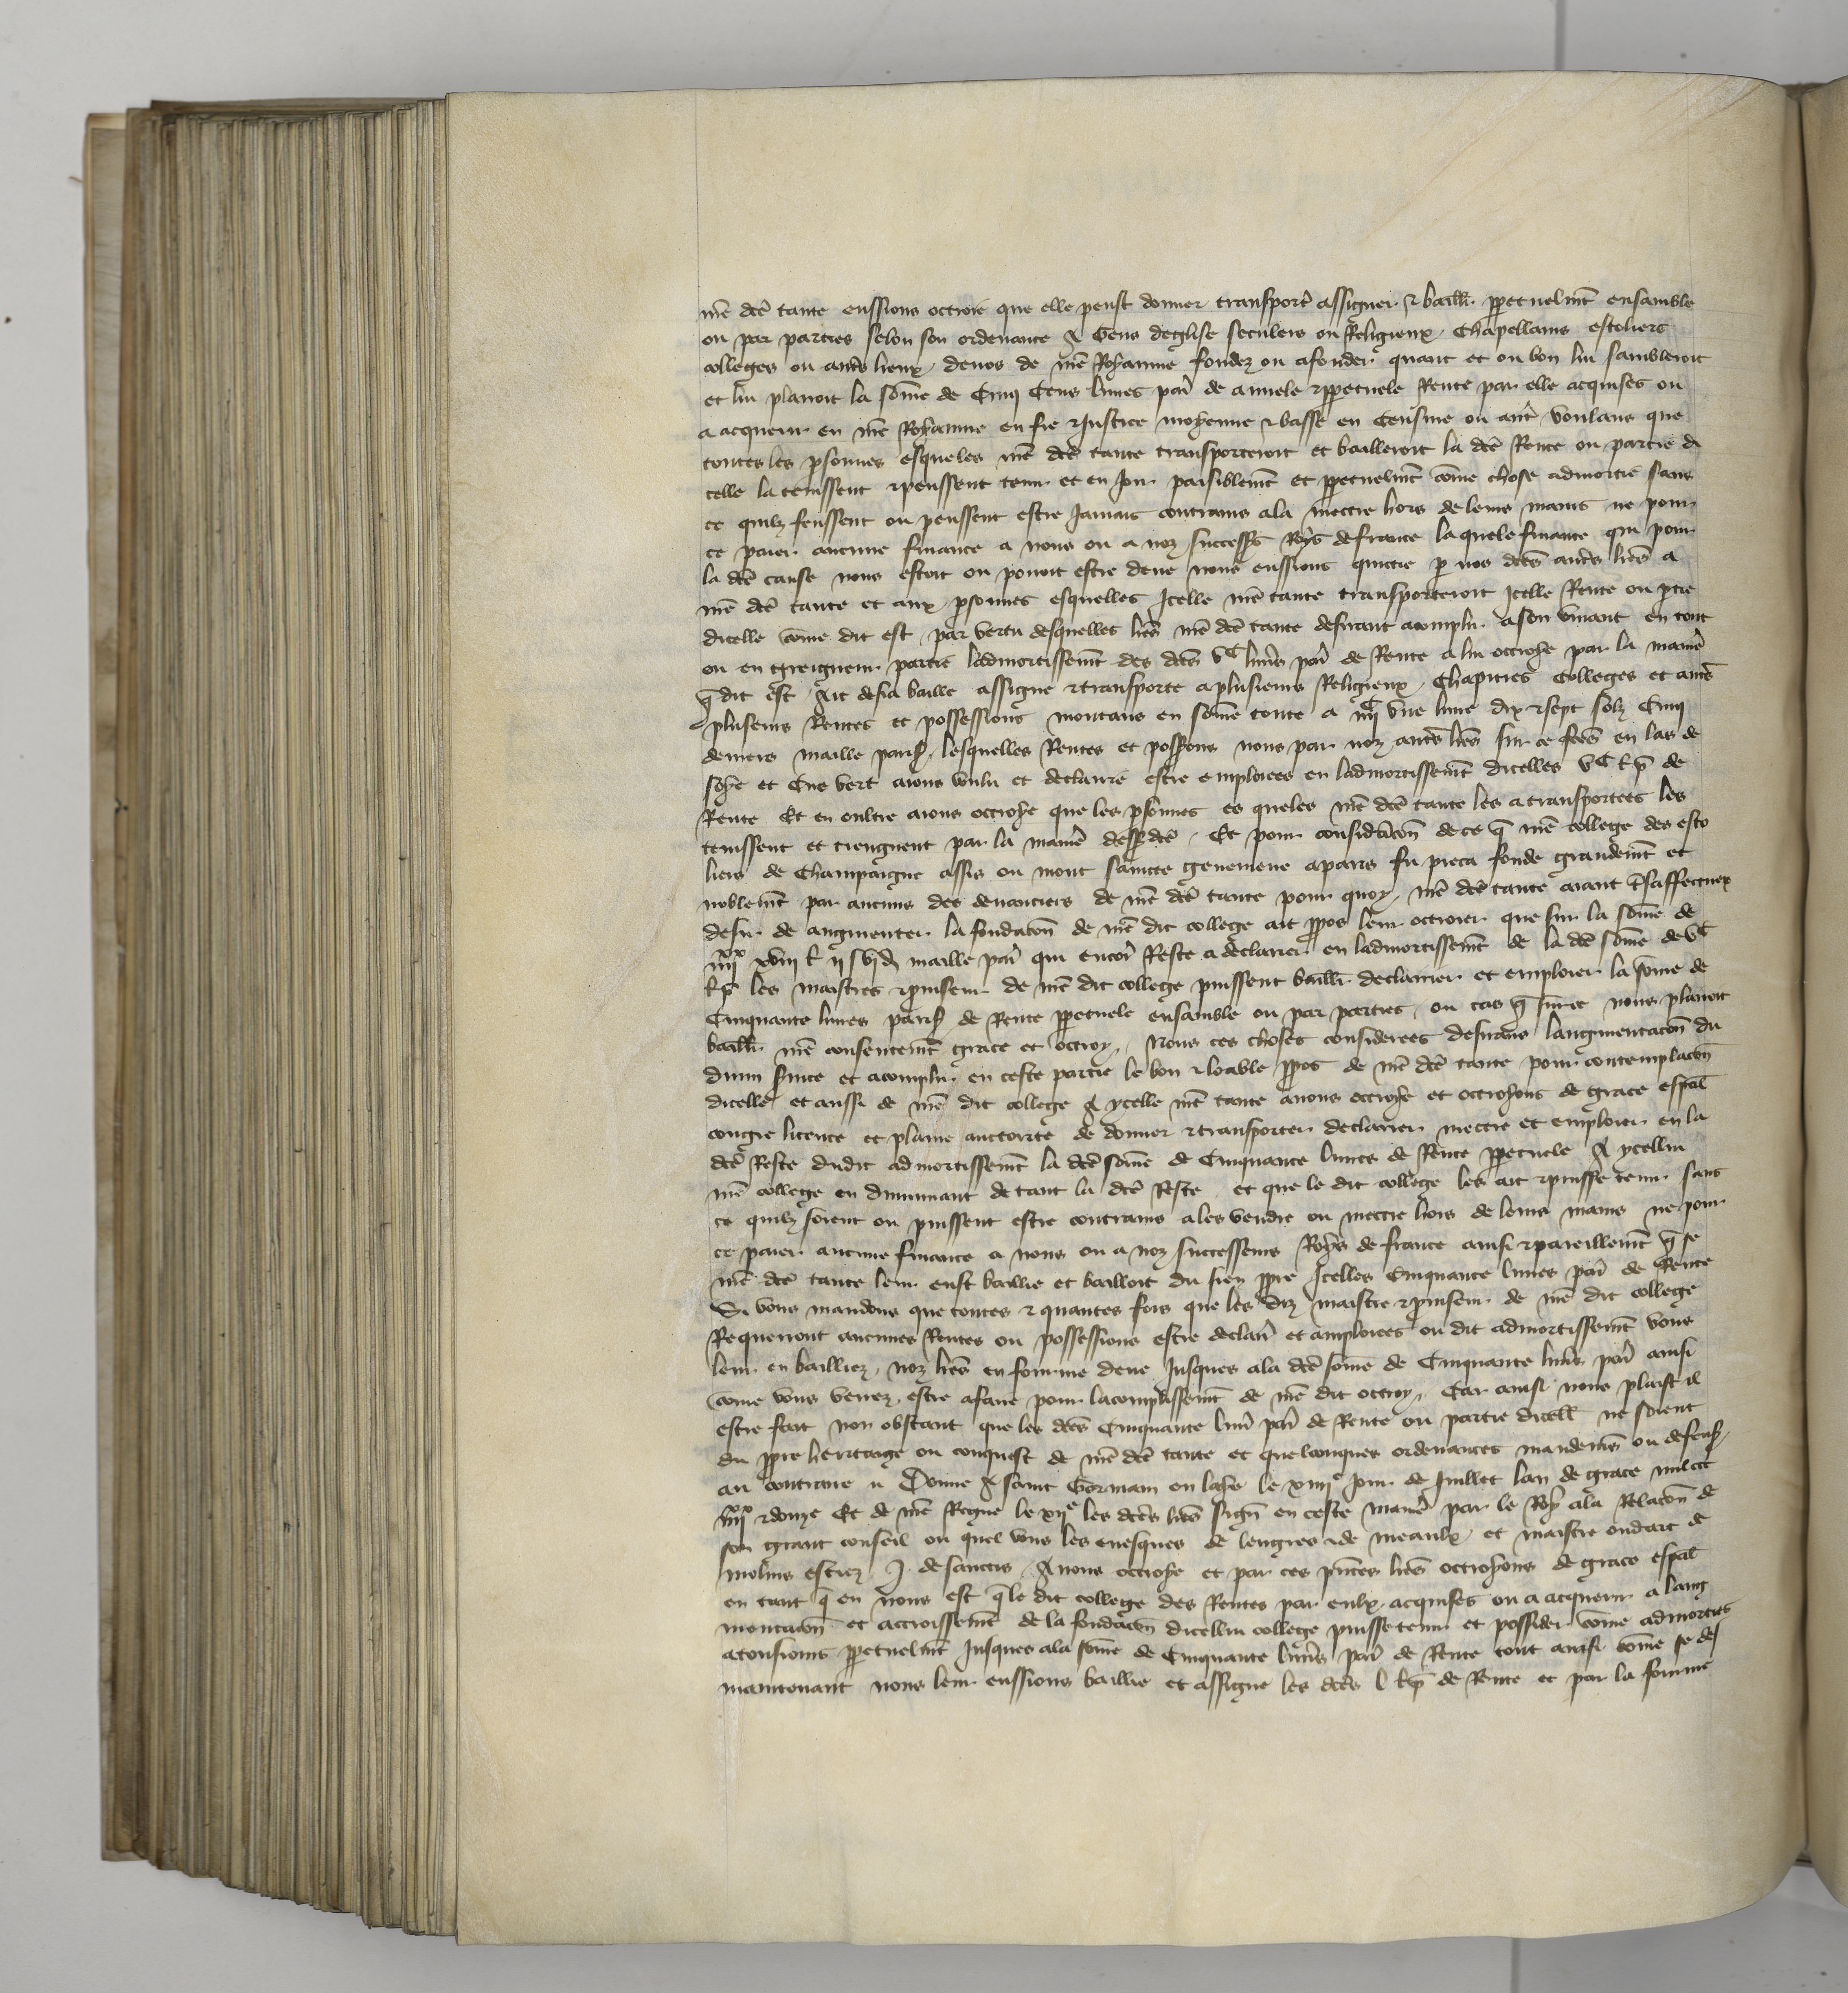 mẽ dcẽ tante eussions octroié que elle peust donner transport̾ assigner ⁊ baill̾ ppetuelmt̃ ensamble
ou par parties selon son ordenance A Gens deglise seculers ou Religieux, Chapellains escoliers
colleges ou autr̾s lieux, deuos de mẽ Royaume fondez ou afonder quant et ou bon lui sambleroit
et lui plairoit la som̃e de Cinq Cens liures par̾ de annele ⁊ ppetuele Rente par elle acquises ou
a acquerir en mẽ Royaume en fie ⁊ Justice moyenne ⁊ basse en Censiue ou autr̾ voulans que
toutes les psonnes esqueles mẽ dcẽ tante transporteroit et bailleroit la dcẽ Rente ou partie di
celle la tenissent ⁊ peussent tenir et en Joir paisiblemt̃ et ppetuelmt̃ com̃e chose admortie sans
ce quilz feussent ou peussent estre Jamais contrains ala mectre hors de leurs mains ne pour
ce paier aucune finance a nous ou a noz successrs̃ Roys de france laquele finance qui pour
la dcẽ cause nous estoit ou pouoit estre deue nous eussions quictie p nos dcẽs autr̾s lrẽs a
mẽ dcẽ tante et aux psonnes esquelles Icelle mẽ tante transporteroit Icelle Rente ou ptie
dicelle com̃e dit est, par vertu desquelles lrẽs mẽ dcẽ tante desirant acomplir ason viuant en tout
ou en greigneur partie ladmortissemt̃ des dcẽs vC liurs̾ par̾ de Rente a lui octroye par la manier̾
q̃ dit est, Ait desia baille assigne ⁊ transporte a plusieurs Religieux, Chapitres Colleges et autr̾s
plusieurs Rentes et possessions montans en som̃e toute a iiijC vne liure dix ⁊ sept solz Cinq
deniers maille paris̾, lesquelles Rentes et possess̾ons nous par noz autr̾s lrẽs sur ce fcẽs en las de
soye et Cire vert aions voulu et declairié estre emploiees en ladmortissemt̃ dicelles vC l̃ p̃ de
Rente Et en oultre aions octroyé que les psonnes es queles mẽ dcẽ tante les a transportees les
tenissent et tiengnent par la manier̾ dess̾ dcẽ, Et pour considacõn de ce q̃ mẽ college des esco
liers de Champaigne assis ou mont saincte geneuieue a paris fu pieca fonde grandemt̃ et
noblemt̃ par aucuns des deuanciers de mẽ dcẽ tante pour quoy, mẽ dcẽ tante aiant t̾saffectueux
desir de augmenter la fondacõn de mẽ dit college ait ppos leur octroier que sur la som̃e de
iiijxx xviij l̃ ij s̃ vij d̃ maille par̾ qui encor̾ Reste a declairer en ladmortissemt̃ de la dcẽ som̃e de vC
l̃ p̃ les maistres ⁊ prouiseur de mẽ dit college puissent baill̾ declairier et emploier la som̃e de
Cinquante liures paris̾ de Rente ppetuele ensamble ou par parties, ou cas q̃ sur ce nous plairoit
baill̾ mẽ consentemt̃ grace et octroy, Nous ces choses considerees desirans laugmentacõn du
diuin seruice et acomplir en ceste partie le bon ⁊ loable ppos de mẽ dcẽ tante pour contemplacõn
dicelle et aussi de mẽ dit college A ycelle mẽ tante auons octroye et octroyons de grace espal̃
congie licence et plaine auctorité de donner ⁊ transporter declairier mectre et emploier en la
dcẽ Reste dudit admortissemt̃ la dcẽ som̃e de Cinquante liures de Rente ppetuele A ycellui
mẽ college en diminuant de tant la dcẽ Reste, et que le dit college les ait ⁊ puisse tenir sans
ce quilz soient ou puissent estre contrains ales vendre ou mectre hors de leurs mains ne pour
ce paier aucune finance a nous ou a noz successeurs Roys de france ainsi ⁊ pareillemt̃ q̃ se
mẽ dcẽ tante leur eust baillie et bailloit du sien ppre Icelles Cinquante liures par̾ de Rente
Si vous mandons que toutes ⁊ quantes fois que les diz maistre ⁊ prouiseur de mẽ dit college
Requerront aucunes Rentes ou possessions estre declair̾ et amploiees ou dit admortissemt̃ vous
leur en bailliez, noz lrẽs en fourme deue Jusques ala dcẽ som̃e de Cinquante liurs̾ par̾ ainsi
com̃e vous verrez estre afaire pour lacomplissemt̃ de mẽ dit octroy, Car ainsi nous plaist il
estre fait non obstant que les dcẽs Cinquante liur̾ par̾ de Rente ou partie dicell̾ ne soient
du ppre heritaige ou conquest de mẽ dcẽ tante et quelconques ordenances mandemẽs ou defens̾,
au contraire ⁊ Donne A saint Germain en laye le xiiije Jour de Juillet lan de grace mil ccc
iiijxx ⁊ douze Et de mẽ Regne le xije les dcẽs lrẽs sign̾ en ceste manier̾ par le Roy ala Relacõn de
son grant conseil ou quel vous les euesques de lengres ⁊ de meaulx, et maistre oudart de
molins estiez J. de sanctis, Auons octroye et par ces pñtes lrẽs octroyons de grace espal̃
en tant q̃ en nous est q̃ le dit college des Rentes par eulx acquises ou a acquerir a laug
mentacõn et accroissemt̃ de la fondacõn dicellui college puisse tenir et possider com̃e admorties
atousiours ppetuelmt̃ Jusques ala som̃e de Cinquante liurs̾ par̾ de Rente tout ainsi com̃e se des
maintenant nous leur eussions baillie et assigne les dcẽs l l̃ p̃ de Rente et par la fourme